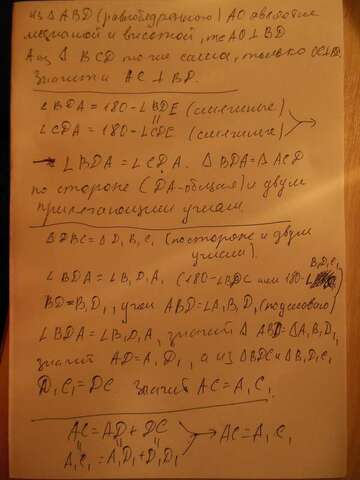 из Δ ABD (равнобедренного) AC является
медианой и высотой, те AO ⊥ BD
А из Δ BCD то же самое, только OC⊥BD.
Значит AC ⊥ BD.
∠BDA = 180 - ∠BDE (смежные)
∠CDA = 180 - ∠CDE (смежные)
∠BDA = ∠CDA. Δ BDA = Δ ACD
по стороне (DA-общая) и двум
прилегающим углам.
Δ DBC = Δ D₁B₁C₁ (по стороне и двум
углам).
B₁D₁C₁
∠BDA = ∠B₁D₁A₁ (180-∠BDC или 180-∠
BD=B₁D₁, угол ABD=∠A₁B₁D₁ (по условию)
∠BDA = ∠B₁D₁A₁ значит Δ ABD=ΔA₁B₁D₁,
значит AD=A₁D₁, а из ΔBDC и ΔB₁D₁C₁
D₁C₁=DC Значит AC=A₁C₁.
AC=AD+DC
AC=A₁C₁
A₁C₁=A₁D₁+D₁D₁